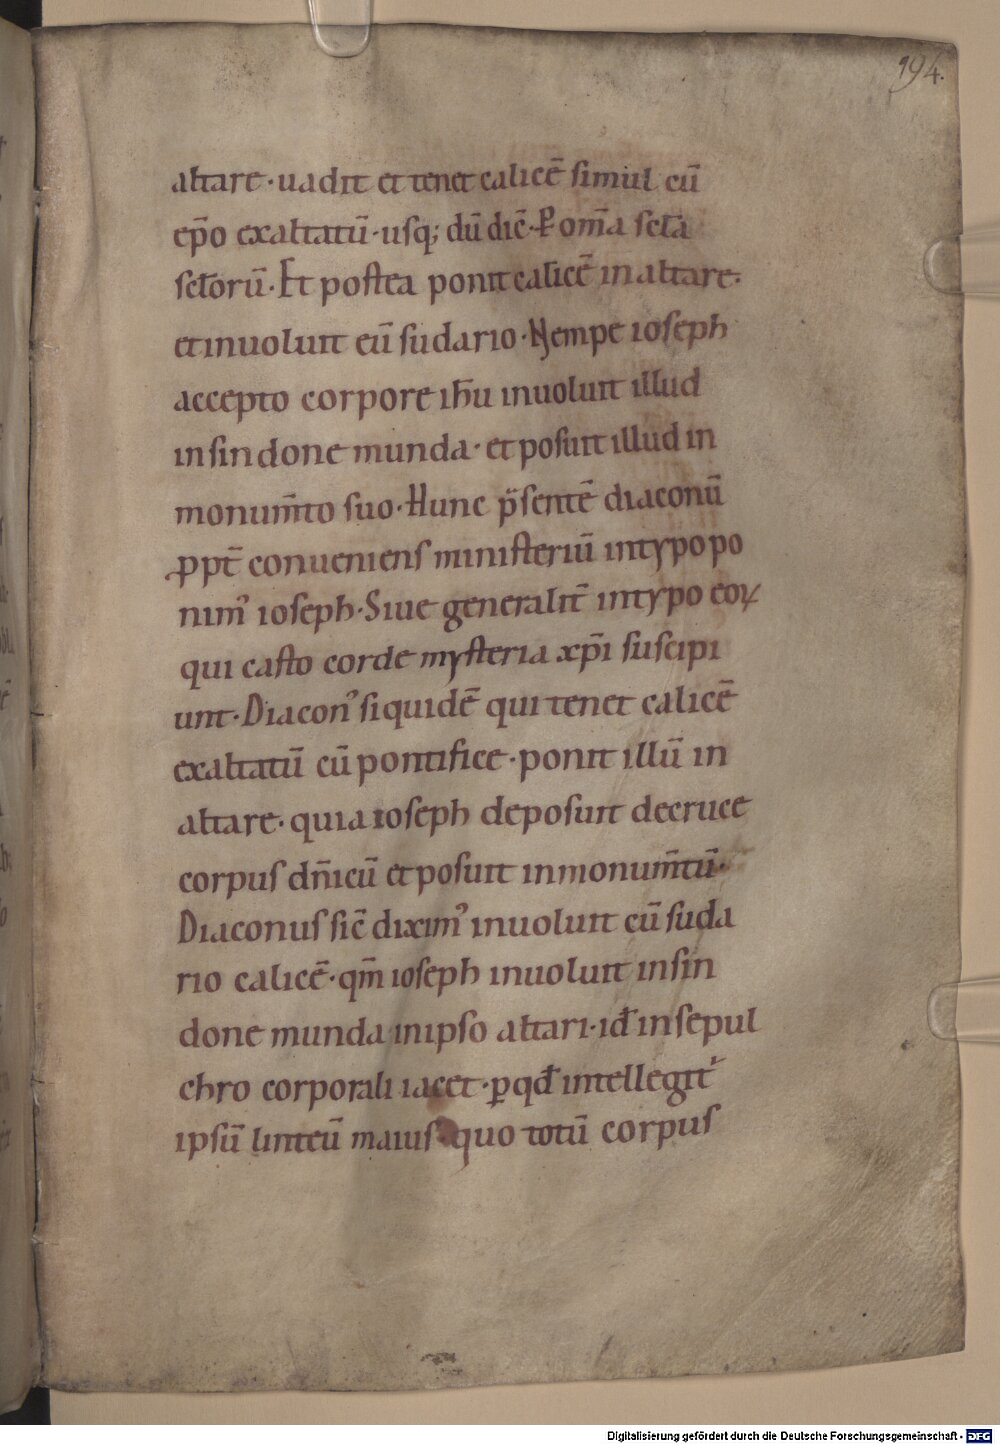 194.
altare · uadit et tenet calicē simul cū
ep̄o exaltatū · usq; dū dic̄ · P om̄a scl̄a
scl̄orū · Et postea ponit calicē in altare ·
et inuoluit eū sudario · Nempe ioseph
accepto corpore ih̄u inuoluit illud
in sindone munda · et posuit illud in
monum̄to suo · Hunc p̄sentē diaconū
ꝓpt̄ conueniens ministeriū in typo po
nim᾽ ioseph · Siue generalit̄ in typo eoꝝ
qui casto corde mysteria xp̄i suscipi
unt · Diacon᾽ siquidē qui tenet calicē
exaltatū cū pontifice · ponit illū in
altare · quia ioseph deposuit de cruce
corpus dn̄icū et posuit in monum̄tū ·
Diaconus sic̄ dixim᾽ inuoluit eū suda
rio calicē · qm̄ ioseph inuoluit in sin
done munda in ipso altari · id̄ in sepul
chro corporali iacet · ꝑ qd̄ intellegit᾽
ipsū linteū maius · quo totū corpus
Digitalisierung gefördert durch die Deutsche Forschungsgemeinschaft - DFG